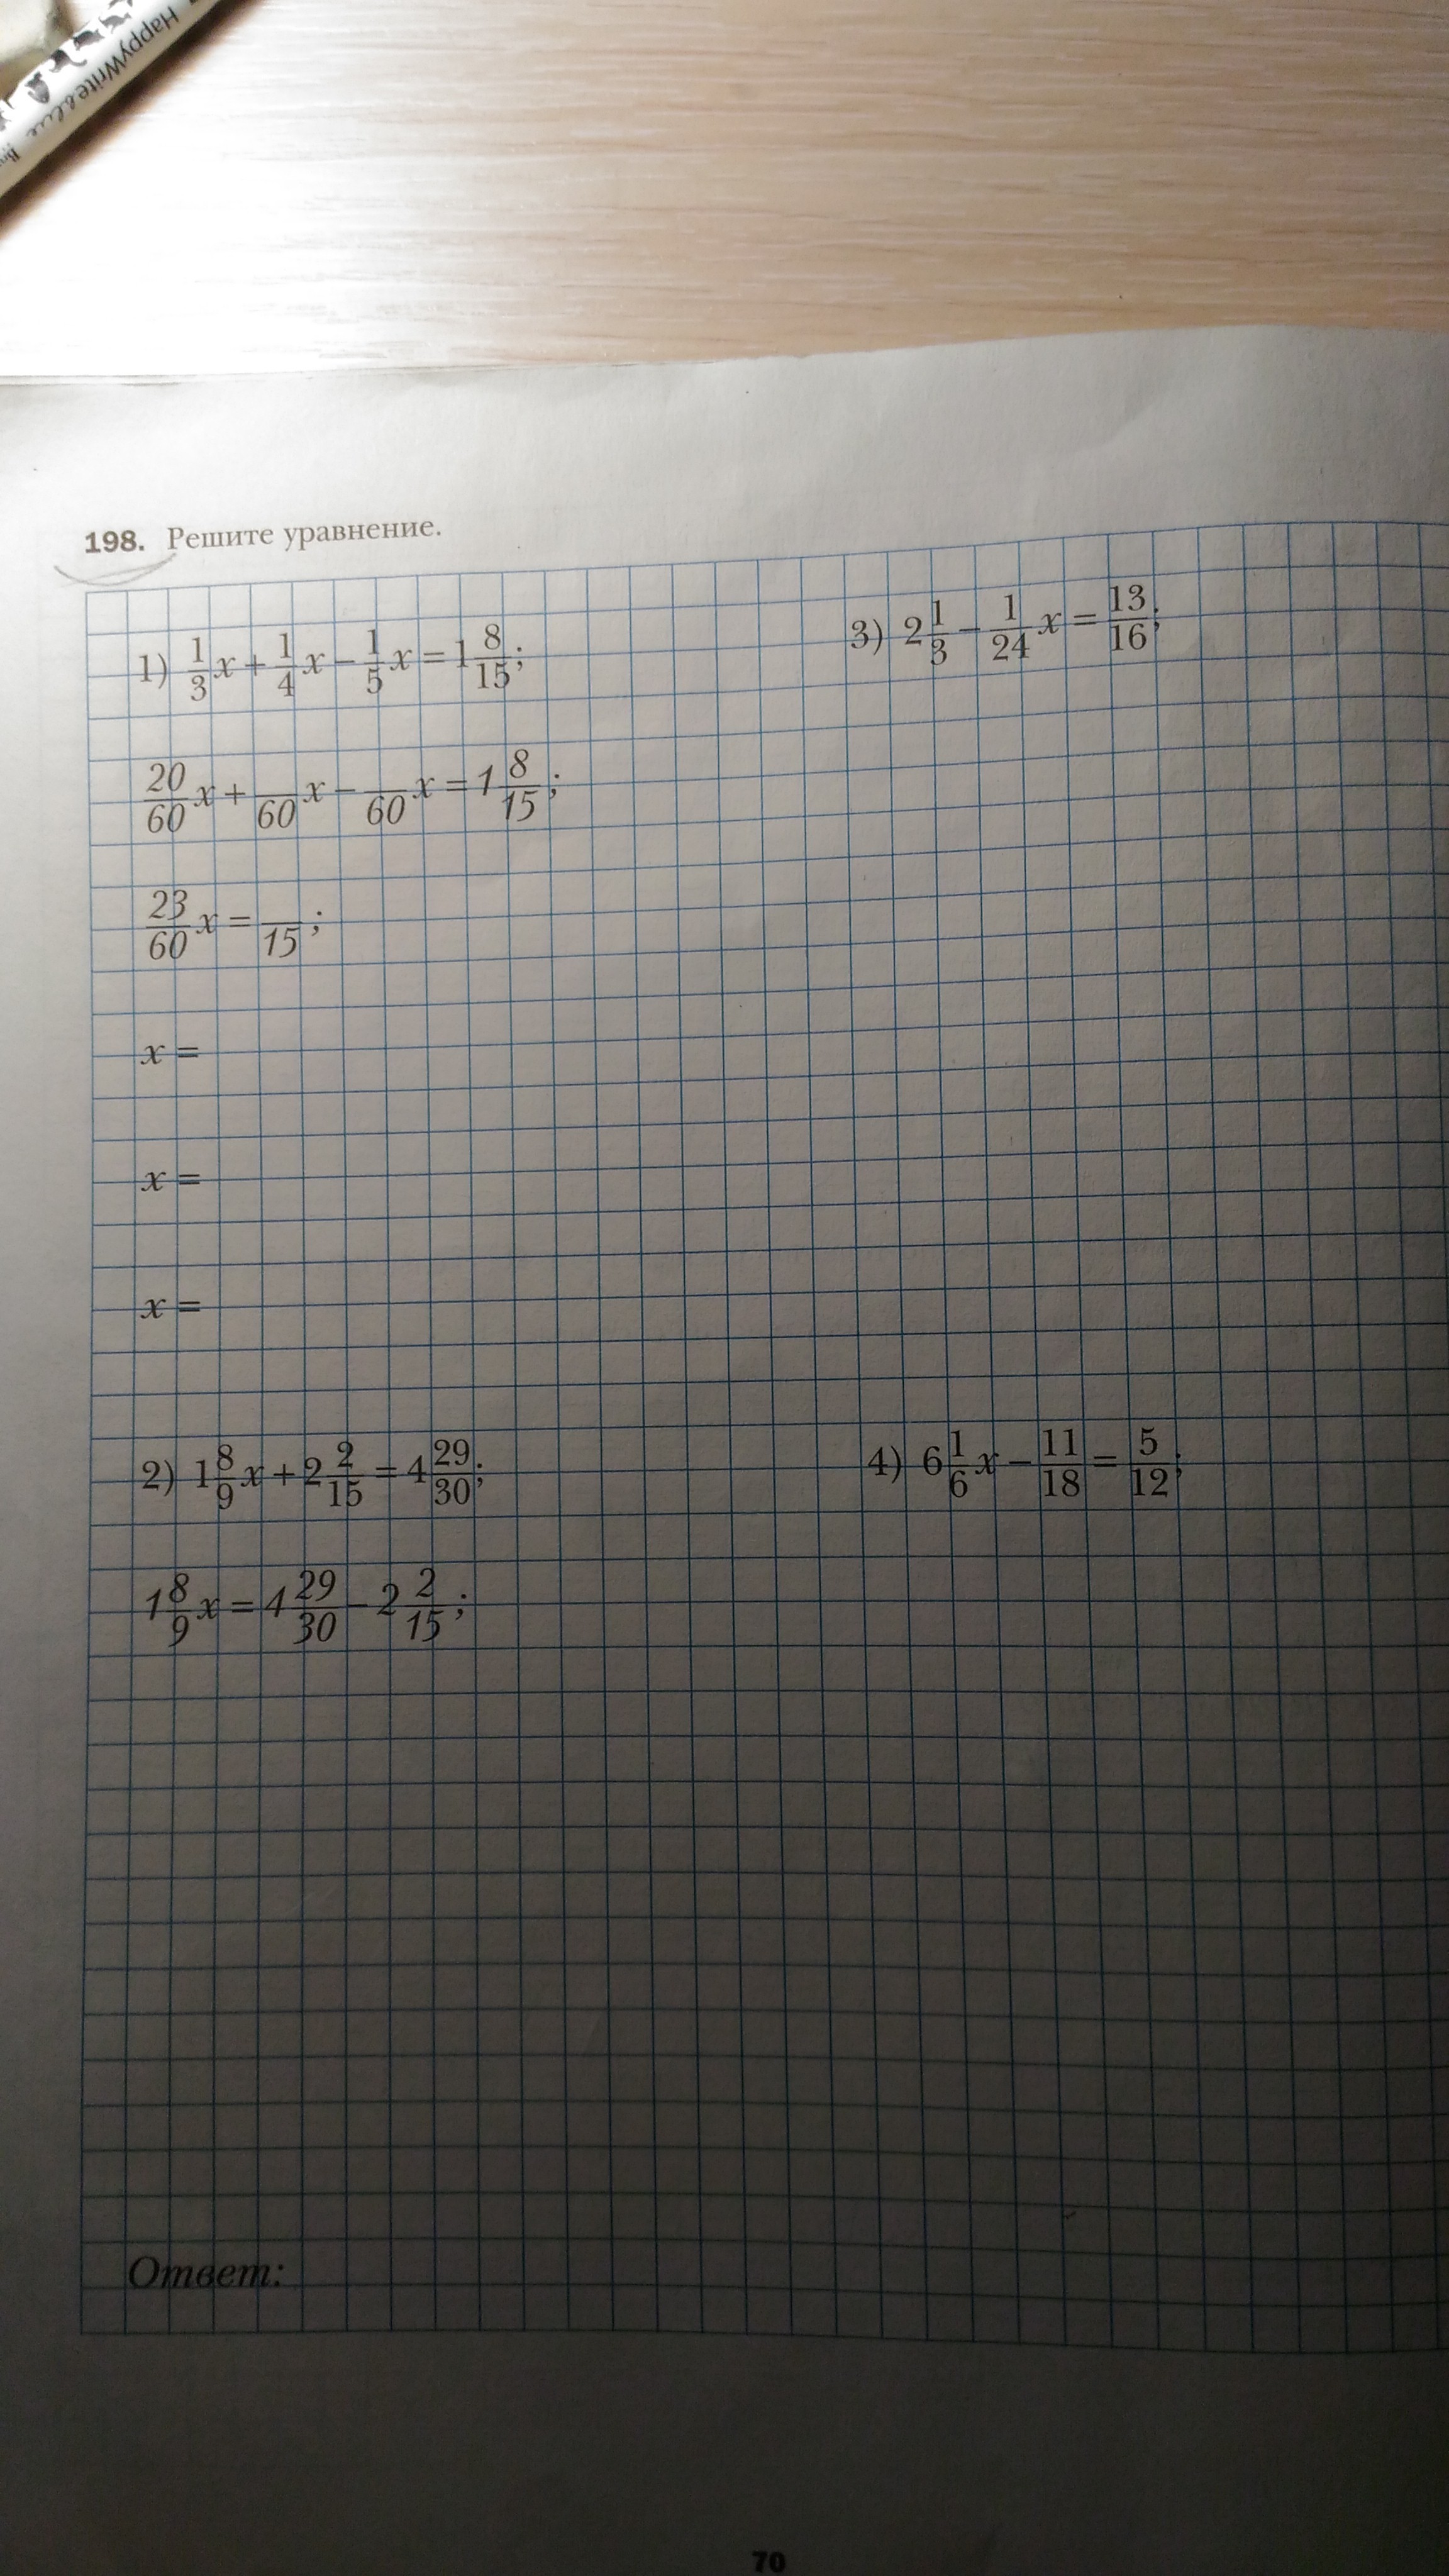 HappyWrite
198. Решите уравнение.
1) 1/3 x + 1/4 x − 1/5 x = 1 8/15;
20/60 x + /60 x − /60 x = 1 8/15;
23/60 x = /15;
x =
x =
x =
2) 1 8/9 x + 2 2/15 = 4 29/30;
1 8/9 x = 4 29/30 − 2 2/15;
3) 2 1/3 − 1/24 x = 13/16;
4) 6 1/6 x − 11/18 = 5/12;
Ответ:
70